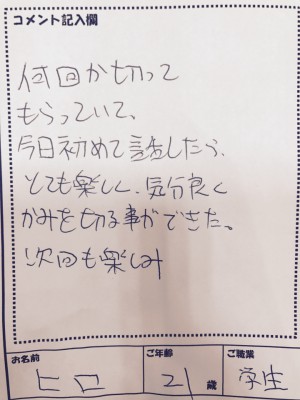 コメント記入欄
何回か切って
もらっていて、
今日初めて話したら、
とても楽しく、気分良く
かみを切る事ができた。
次回も楽しみ
お名前
ヒロ
ご年齢
21歳
ご職業
学生